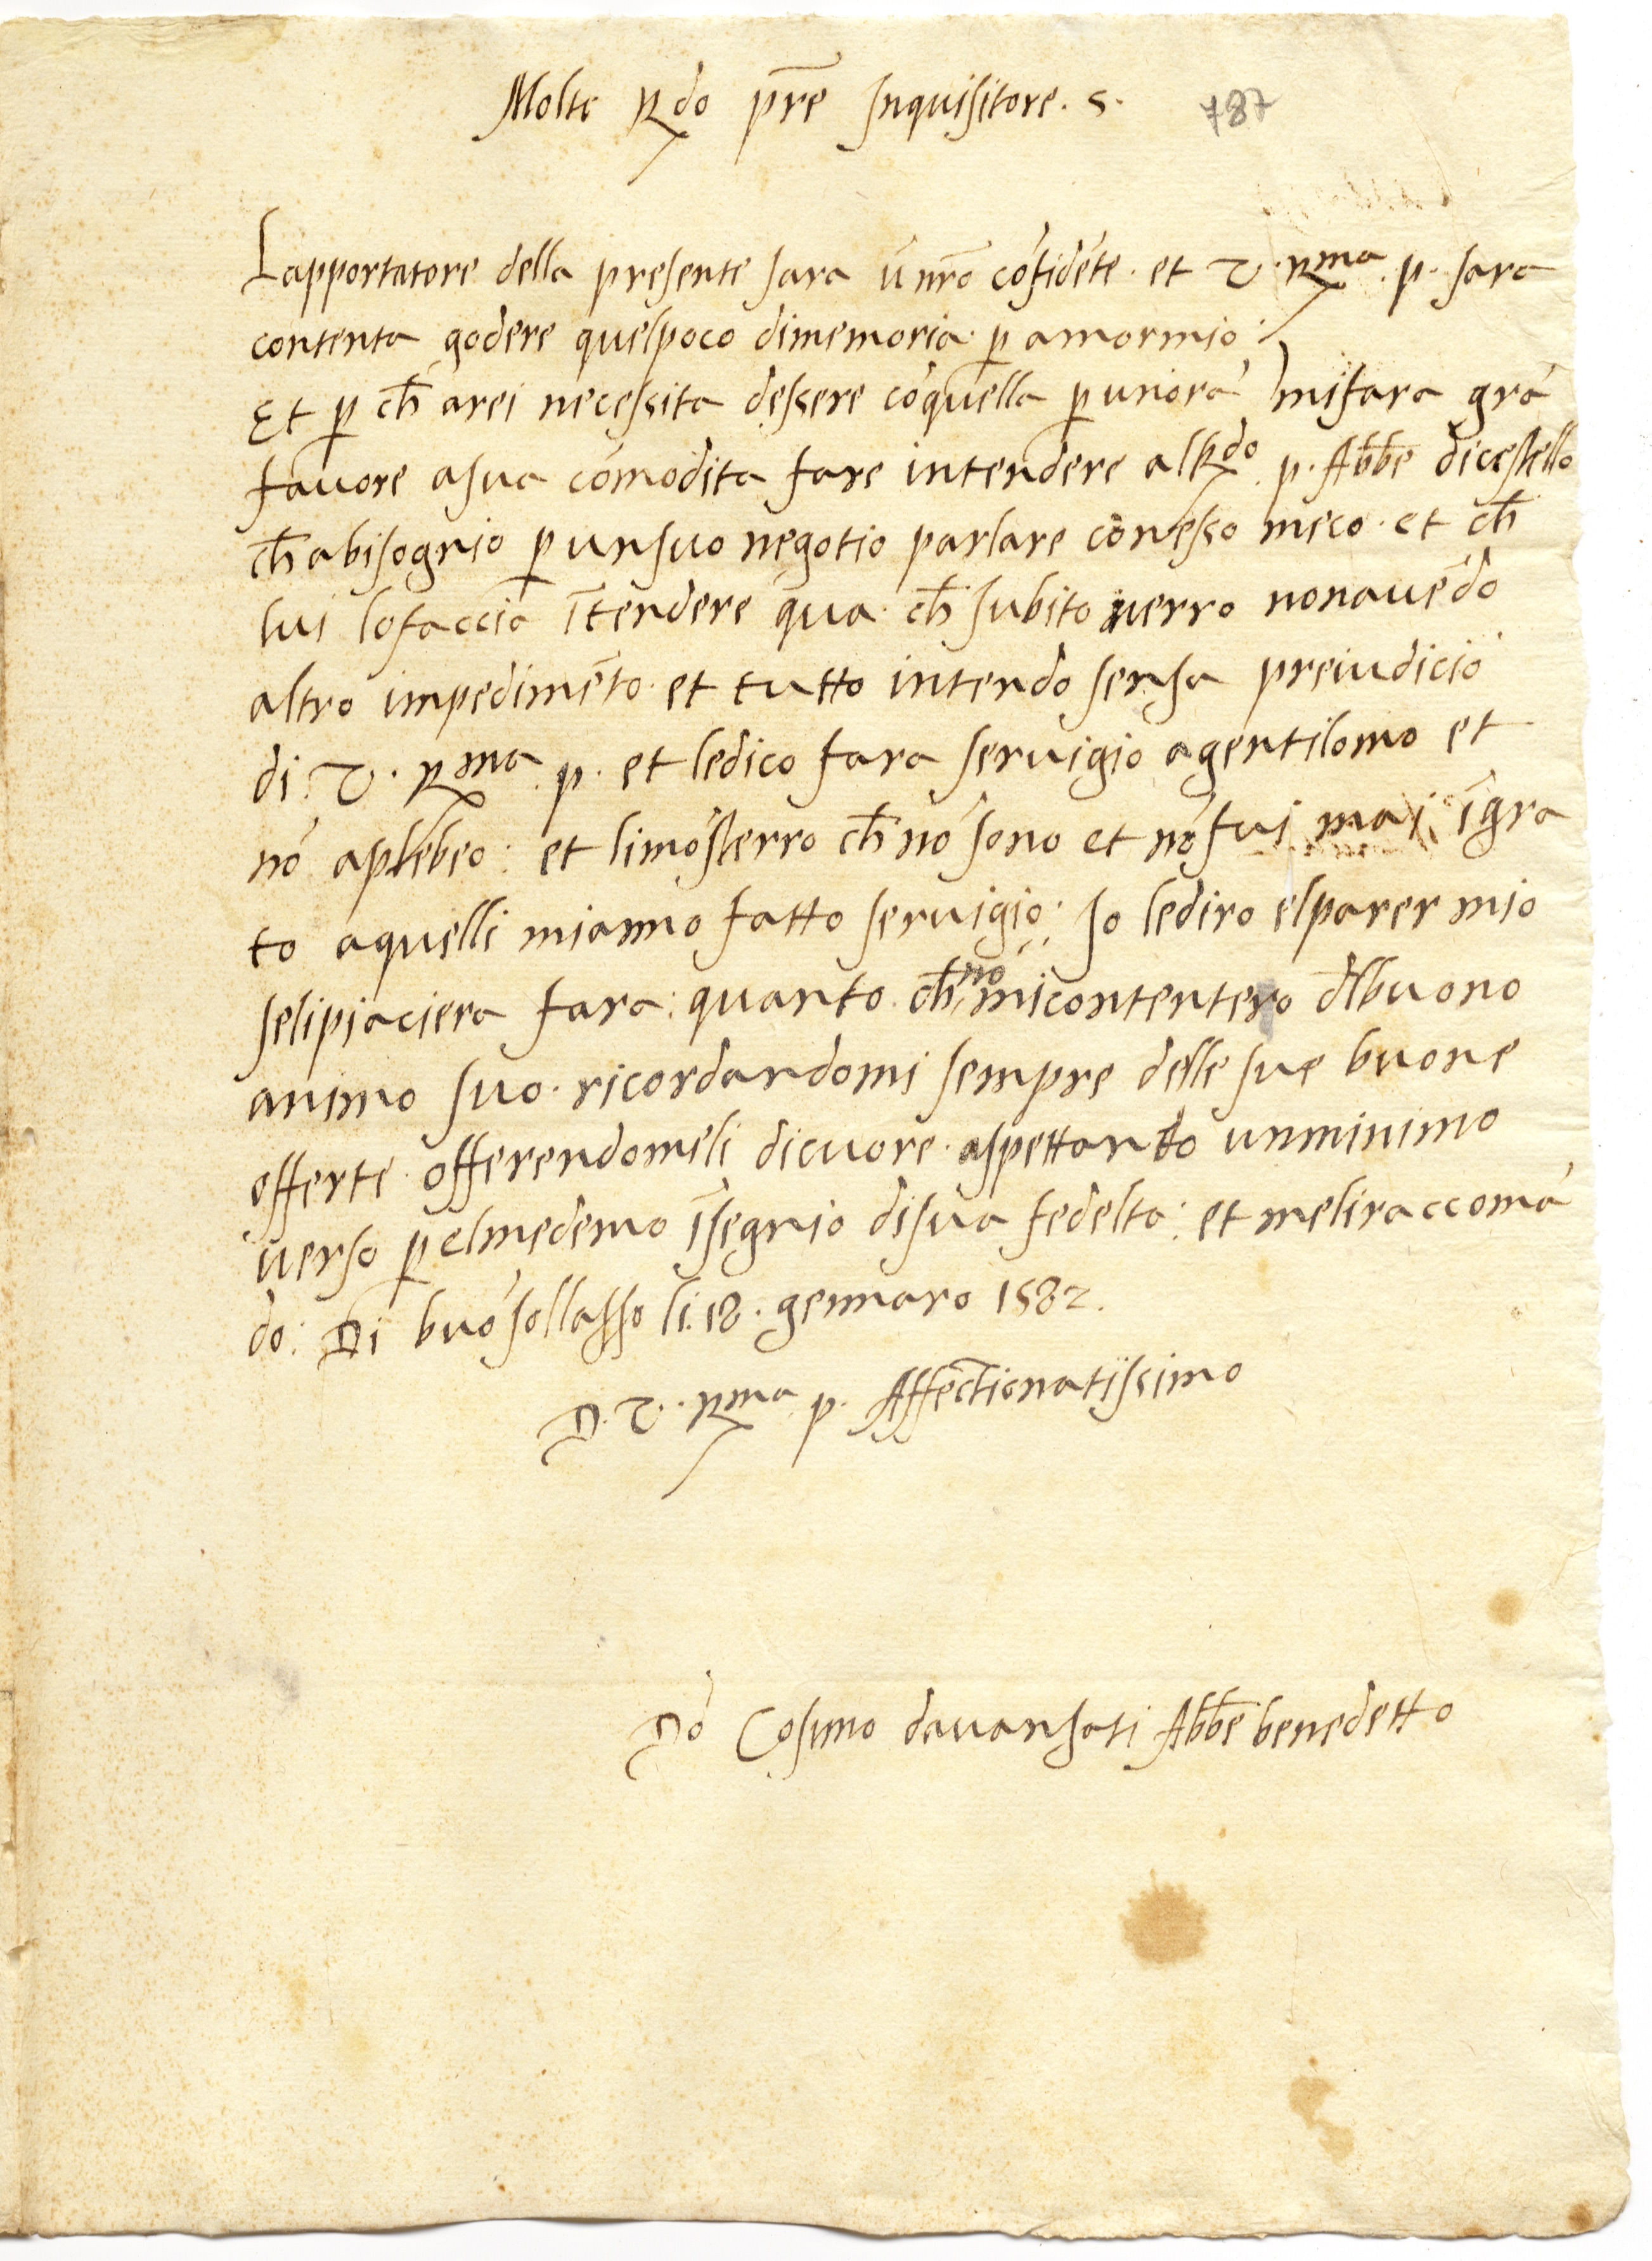 Molto Rdo pre Inquisitore. S.
787
Lapportatore della presente sara ūnro cōfidēte. et V. Rma. p. sara
contenta godere quelpoco dimemoria p amormio:
Et p ch̄ arei necessita dessere cōquella p unorā mifara grā
fauore asua cōmodita fare intendere alRdo. p. Abbē dicestello
ch̄ abisognio p unsuo negotio parlare conesso meco. et ch̄
lui lofaccia ītendere qua. ch̄ subito verro nonauēdo
altro impedimēto. et tutto intendo sensa preiudicio
di V. Rma. p. et ledico fara seruigio agentilomo et
nō aplebeo: et limōsterro ch̄ nō sono et nō fui mai īgra
to aquelli mianno fatto seruigio: Io lediro elparer mio
selipiaciera fara: quanto ch̄ nō micontentero dlbuono
animo suo. ricordandomi sempre delle sue buone
offerte. offerendomeli dicuore. aspettando unminimo
uerso p elmedemo īsegnio disua fedelta: et meliraccomā
do: Di buōsollasso li. 18. gennaro 1582.
D. V. Rma. p. Affectionatissimo
Dō Cosimo dauansati Abbē benedetto